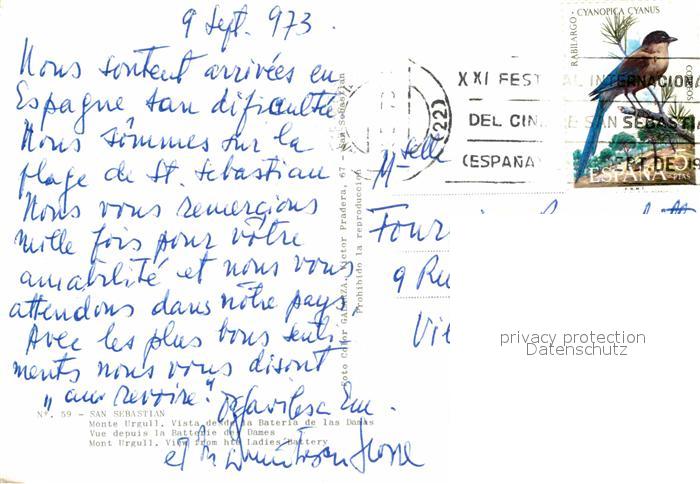 9 Sept. 973.
Nous sontent arrivées en
Espagne san dificulté
Nous sommes sur la
plage de St Sebastian
Nous vous remercions
mille fois pour vôtre
amabilité et nous vous
attendons dans nôtre pays,
Avec les plus bons senti-
ments nous vous disont
"au revoire."
et
Nº. 59 - SAN SEBASTIAN
Monte Urgull. Vista desde la Batería de las Damas
Vue depuis la Batterie des Dames
Mont Urgull. View from hte Ladies Battery
Foto Color GALARZA, Victor Pradera, 67 - San Sebastian
Prohibido la reproducción
XXI FESTIVAL INTERNACIONAL
DEL CINE DE SAN SEBASTIAN
(ESPAÑA)
(22)
RABILARGO - CYANOPICA CYANUS
ESPAÑA
PTAS
Mselle
Four
9 Ru
privacy protection
Datenschutz